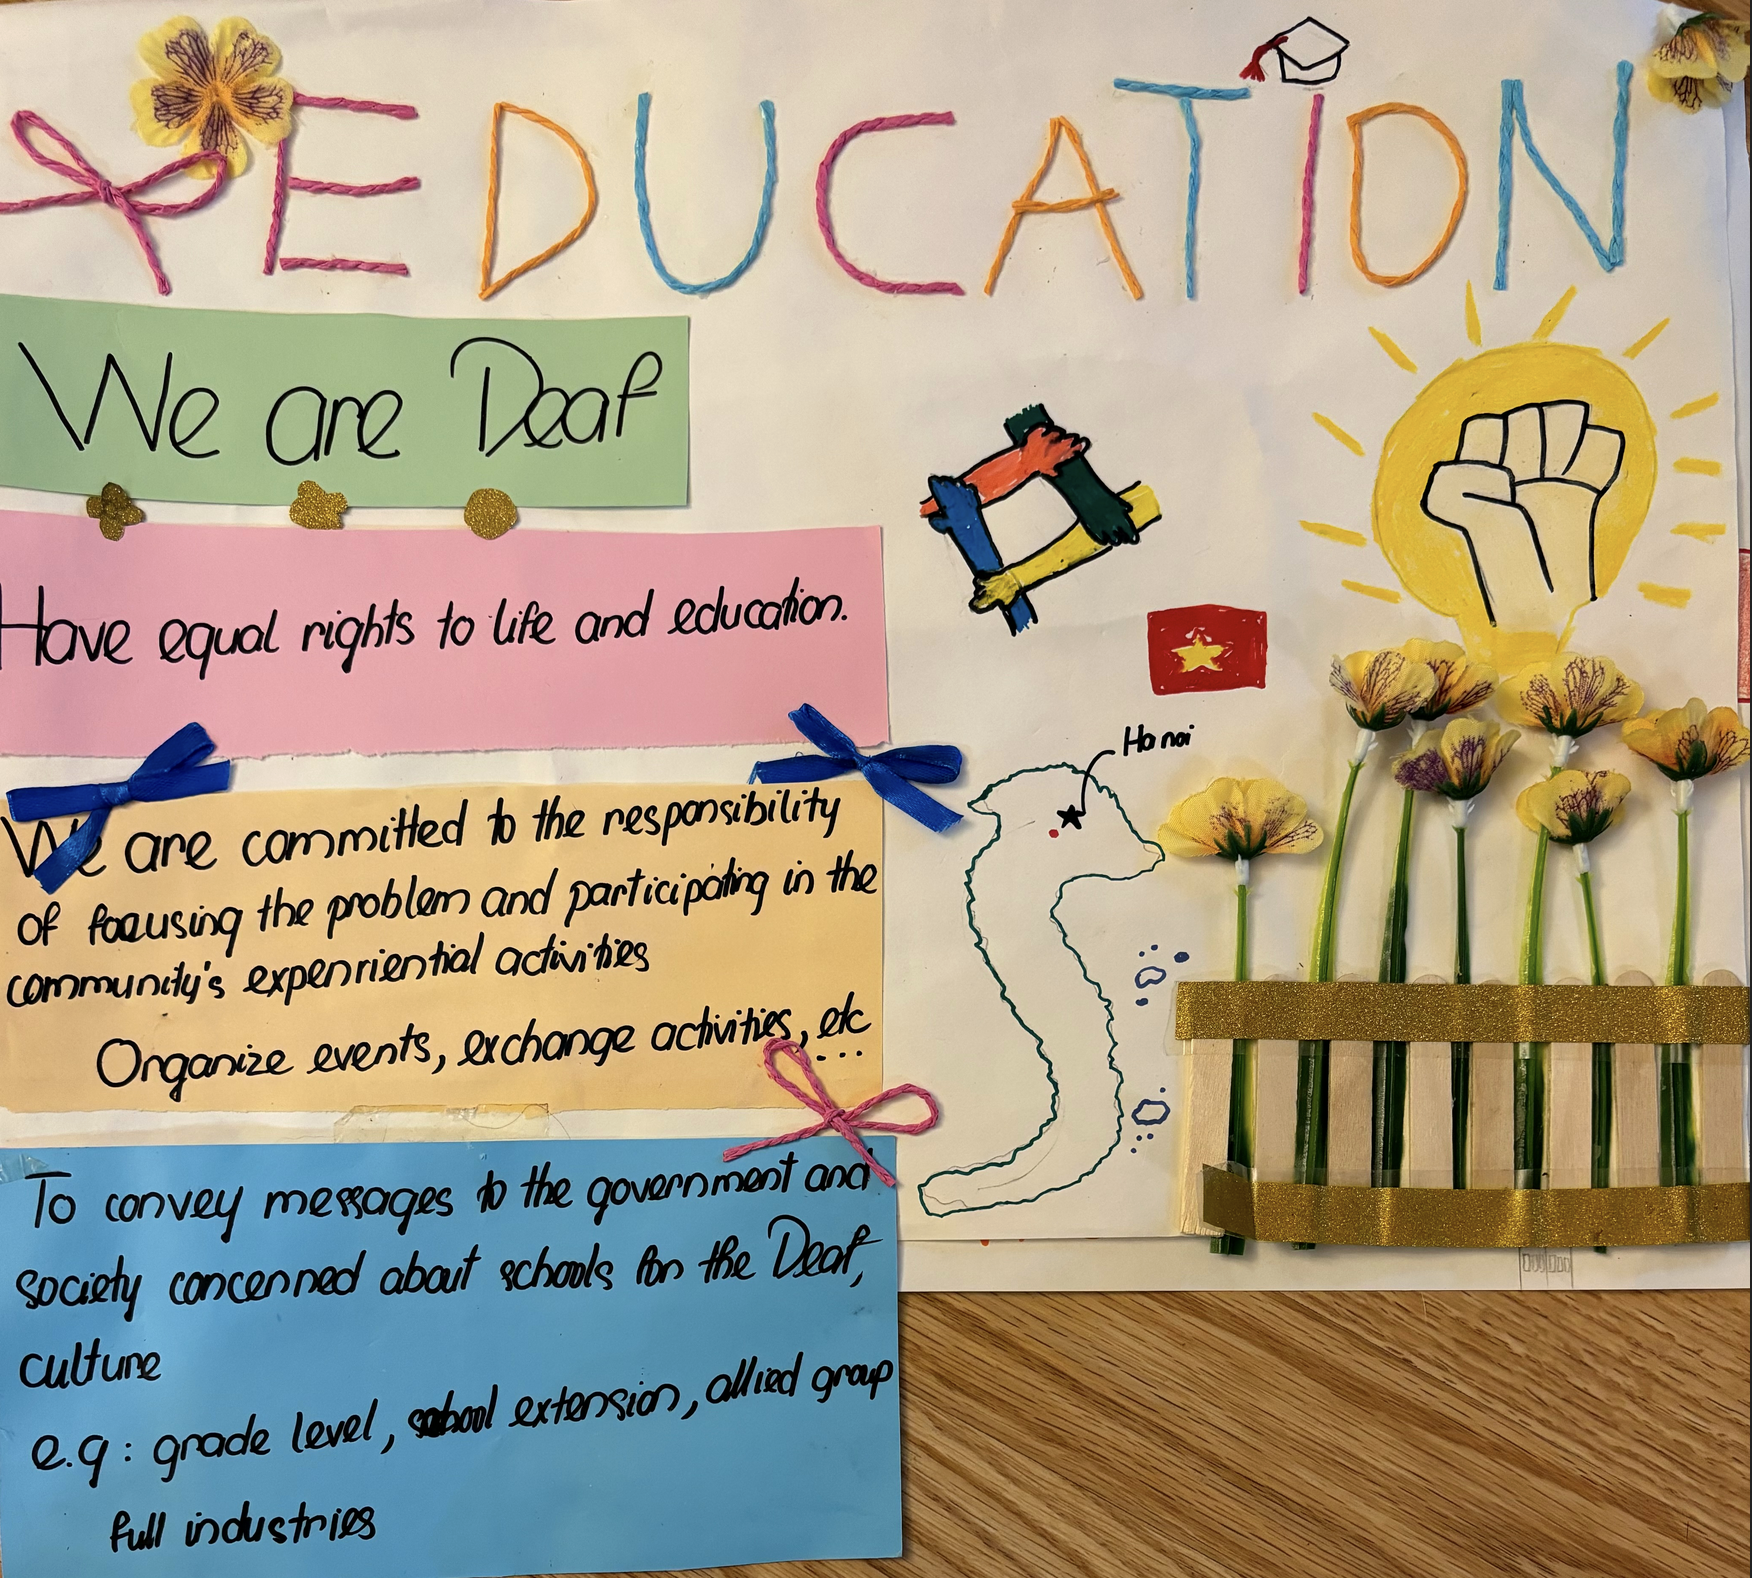 EDUCATION
We are Deaf
Have equal rights to life and education.
Hanoi
We are committed to the responsibility
of focusing the problem and participating in the
community's expenriential activities
Organize events, exchange activities, etc...
To convey messages to the government and
society concenned about schools for the Deaf,
culture
e.g: grade level, school extension, allied group
full industries